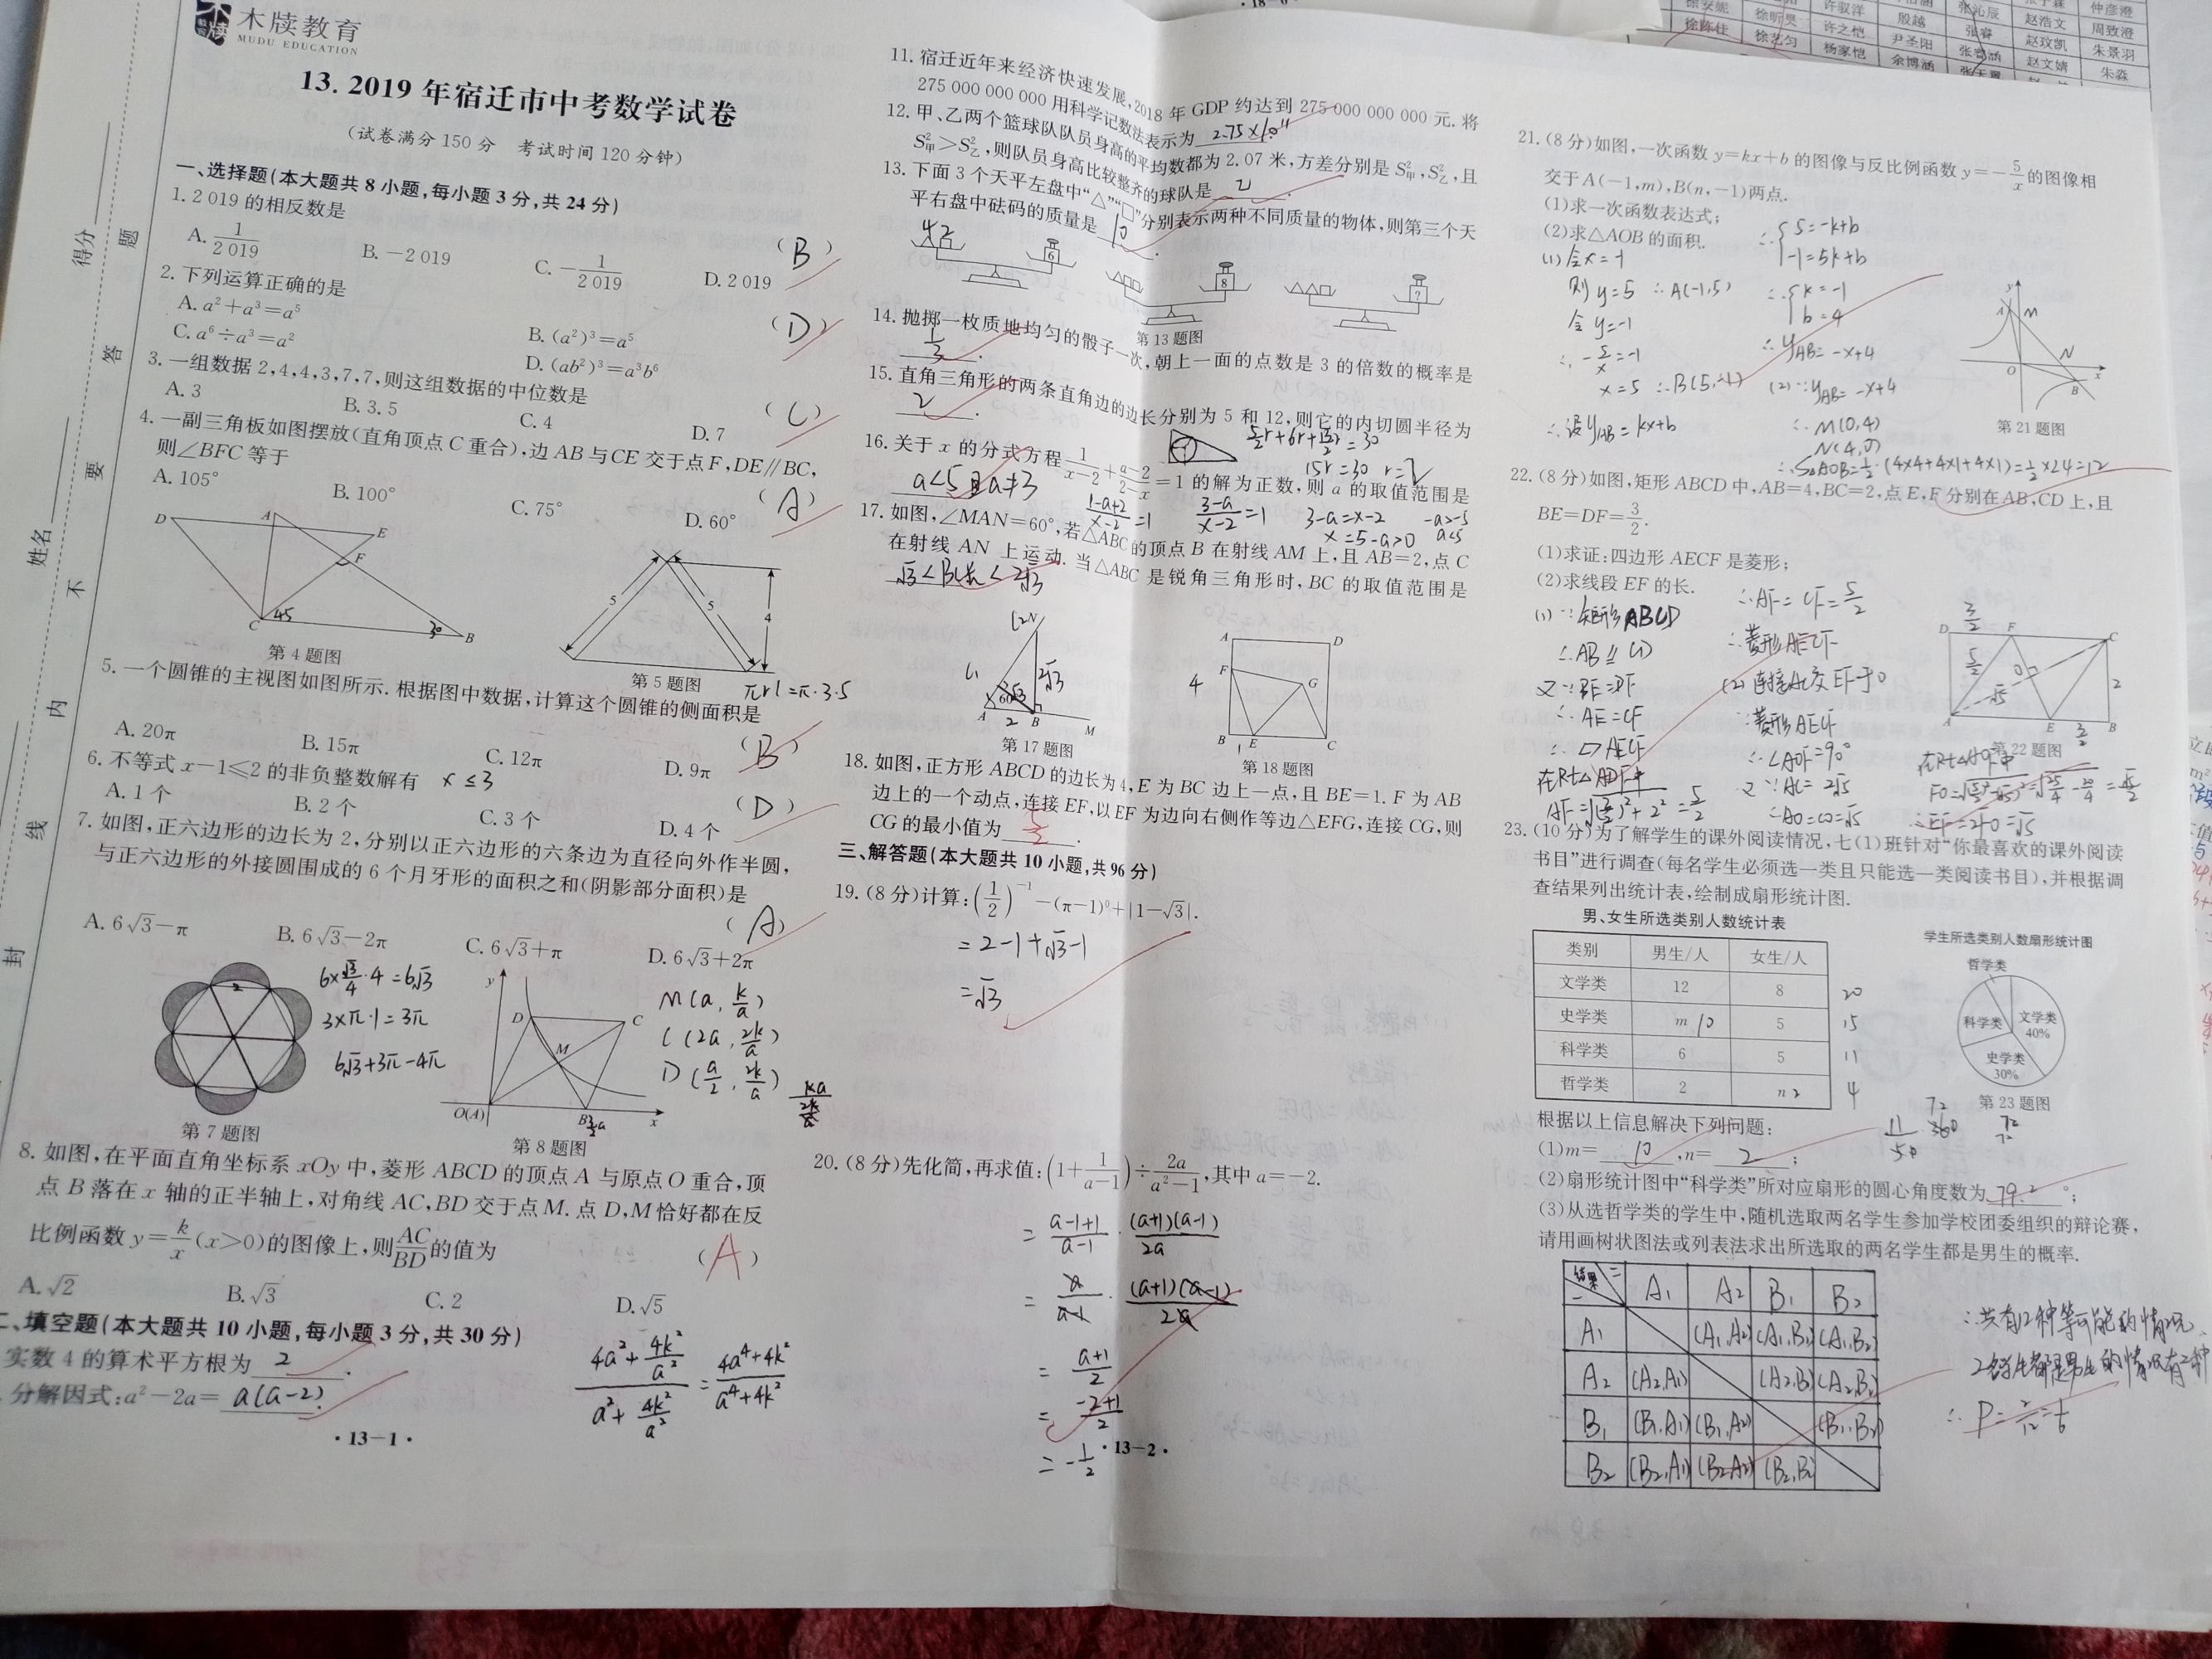 木牍教育
MUDU EDUCATION
13. 2019 年宿迁市中考数学试卷
(试卷满分 150 分 考试时间 120 分钟)
一、选择题(本大题共 8 小题,每小题 3 分,共 24 分)
1. 2 019 的相反数是 (B)
A. 1/2 019 B. -2 019 C. -1/2 019 D. 2 019
2. 下列运算正确的是 (D)
A. a²+a³=a⁵ B. (a²)³=a⁵
C. a⁶÷a³=a² D. (ab²)³=a³b⁶
3. 一组数据 2,4,4,3,7,7,则这组数据的中位数是 (C)
A. 3 B. 3.5 C. 4 D. 7
4. 一副三角板如图摆放(直角顶点 C 重合),边 AB 与 CE 交于点 F,DE∥BC,
则∠BFC 等于 (A)
A. 105° B. 100° C. 75° D. 60°
D A E F C 45 30 B
第 4 题图
5 5 4
第 5 题图
πrl=π·3·5
5. 一个圆锥的主视图如图所示. 根据图中数据,计算这个圆锥的侧面积是
(B)
A. 20π B. 15π C. 12π D. 9π
6. 不等式 x-1⩽2 的非负整数解有 x≤3 (D)
A. 1 个 B. 2 个 C. 3 个 D. 4 个
7. 如图,正六边形的边长为 2,分别以正六边形的六条边为直径向外作半圆,
与正六边形的外接圆围成的 6 个月牙形的面积之和(阴影部分面积)是
(A)
A. 6√3-π B. 6√3-2π C. 6√3+π D. 6√3+2π
2
6×√3/4·4=6√3
3×π·1=3π
6√3+3π-4π
第 7 题图
y D C M O(A) B x
M(a, k/a)
C(2a, 2k/a)
D(a/2, 2k/a)
第 8 题图
8. 如图,在平面直角坐标系 xOy 中,菱形 ABCD 的顶点 A 与原点 O 重合,顶
点 B 落在 x 轴的正半轴上,对角线 AC,BD 交于点 M. 点 D,M 恰好都在反
比例函数 y=k/x(x>0)的图像上,则AC/BD的值为 (A)
A. √2 B. √3 C. 2 D. √5
、填空题(本大题共 10 小题,每小题 3 分,共 30 分)
实数 4 的算术平方根为 2 .
分解因式:a²-2a= a(a-2).
(4a²+4k²/a²)/(a²+4k²/a²)=(4a⁴+4k²)/(a⁴+4k²)
· 13-1 ·
11. 宿迁近年来经济快速发展,2018 年 GDP 约达到 275 000 000 000 元. 将
275 000 000 000 用科学记数法表示为 2.75×10¹¹
12. 甲、乙两个篮球队队员身高的平均数都为 2.07 米,方差分别是 S²甲,S²乙,且
S²甲>S²乙,则队员身高比较整齐的球队是 乙 .
13. 下面 3 个天平左盘中“△”“□”分别表示两种不同质量的物体,则第三个天
平右盘中砝码的质量是 10 .
6 8 ?
第 13 题图
14. 抛掷一枚质地均匀的骰子一次,朝上一面的点数是 3 的倍数的概率是
1/3 .
15. 直角三角形的两条直角边的边长分别为 5 和 12,则它的内切圆半径为
2 .
5/2r+6r+13/2r=30
15r=30 r=2
16. 关于 x 的分式方程1/(x-2)+(a-2)/(2-x)=1 的解为正数,则 a 的取值范围是
a<5且a≠3
(1-a+2)/(x-2)=1 (3-a)/(x-2)=1 3-a=x-2 -a>-5
x=5-a>0 a<5
17. 如图,∠MAN=60°,若△ABC 的顶点 B 在射线 AM 上,且 AB=2,点 C
在射线 AN 上运动. 当△ABC 是锐角三角形时,BC 的取值范围是
√3<BC<2√3
N 2√3 60° A 2 B M
第 17 题图
A D F G 4 B 1 E C
第 18 题图
18. 如图,正方形 ABCD 的边长为 4,E 为 BC 边上一点,且 BE=1. F 为 AB
边上的一个动点,连接 EF,以 EF 为边向右侧作等边△EFG,连接 CG,则
CG 的最小值为 5/2 .
三、解答题(本大题共 10 小题,共 96 分)
19. (8 分)计算:(1/2)⁻¹-(π-1)⁰+|1-√3|.
=2-1+√3-1
=√3
20. (8 分)先化简,再求值:(1+1/(a-1))÷2a/(a²-1),其中 a=-2.
=(a-1+1)/(a-1)·(a+1)(a-1)/2a
=a/(a-1)·(a+1)(a-1)/2a
=(a+1)/2
=(-2+1)/2
=-1/2
· 13-2 ·
21. (8 分)如图,一次函数 y=kx+b 的图像与反比例函数 y=-5/x的图像相
交于 A(-1,m),B(n,-1)两点.
(1)求一次函数表达式;
(2)求△AOB 的面积.
(1)令x=-1
则y=5 ∴A(-1,5)
令y=-1
∴-5/x=-1
x=5 ∴B(5,-1)
∴设yAB=kx+b
∴{5=-k+b
-1=5k+b
∴{k=-1
b=4
∴yAB=-x+4
(2)∵yAB=-x+4
∴M(0,4)
N(4,0)
∴S△AOB=1/2·(4×4+4×1+4×1)=1/2×24=12
y A M N O x B
第 21 题图
22. (8 分)如图,矩形 ABCD 中,AB=4,BC=2,点 E,F 分别在 AB,CD 上,且
BE=DF=3/2.
(1)求证:四边形 AECF 是菱形;
(2)求线段 EF 的长.
(1)∵矩形ABCD
∴AB∥CD
又∵BE=DF
∴AE=CF
∴▱AECF
在Rt△ADF中
AF=√((3/2)²+2²)=5/2
∴AF=CF=5/2
∴菱形AECF
(2)连接AC交EF于O
∵菱形AECF
∴∠AOF=90°
又∵AC=2√5
∴AO=CO=√5
在Rt△AOF中
∴EF=2FO=√5
D 3/2 F C 5/2 O √5 2 A E 3/2 B
第 22 题图
23. (10 分)为了解学生的课外阅读情况,七(1)班针对“你最喜欢的课外阅读
书目”进行调查(每名学生必须选一类且只能选一类阅读书目),并根据调
查结果列出统计表,绘制成扇形统计图.
男、女生所选类别人数统计表
类别 男生/人 女生/人
文学类 12 8 20
史学类 m 10 5 15
科学类 6 5 11
哲学类 2 n 2 4
学生所选类别人数扇形统计图
哲学类
科学类
文学类
40%
史学类
30%
第 23 题图
根据以上信息解决下列问题:
(1)m= 10 ,n= 2 ;
11/50 360 72
(2)扇形统计图中“科学类”所对应扇形的圆心角度数为 79.2 °;
(3)从选哲学类的学生中,随机选取两名学生参加学校团委组织的辩论赛,
请用画树状图法或列表法求出所选取的两名学生都是男生的概率.
结果 一 二 A₁ A₂ B₁ B₂
A₁ (A₁,A₂) (A₁,B₁) (A₁,B₂)
A₂ (A₂,A₁) (A₂,B₁) (A₂,B₂)
B₁ (B₁,A₁) (B₁,A₂) (B₁,B₂)
B₂ (B₂,A₁) (B₂,A₂) (B₂,B₁)
∴共有12种等可能的情况
2名学生都是男生的情况有2种
∴P=2/12=1/6
得分
姓名
题
答
要
不
内
线
封
许驭洋
殷越
张沁辰
赵浩文
仲彦澄
许之恺
尹圣阳
张睿
赵玟凯
周致澄
杨家恺
余博涵
赵文婧
朱景羽
朱淼